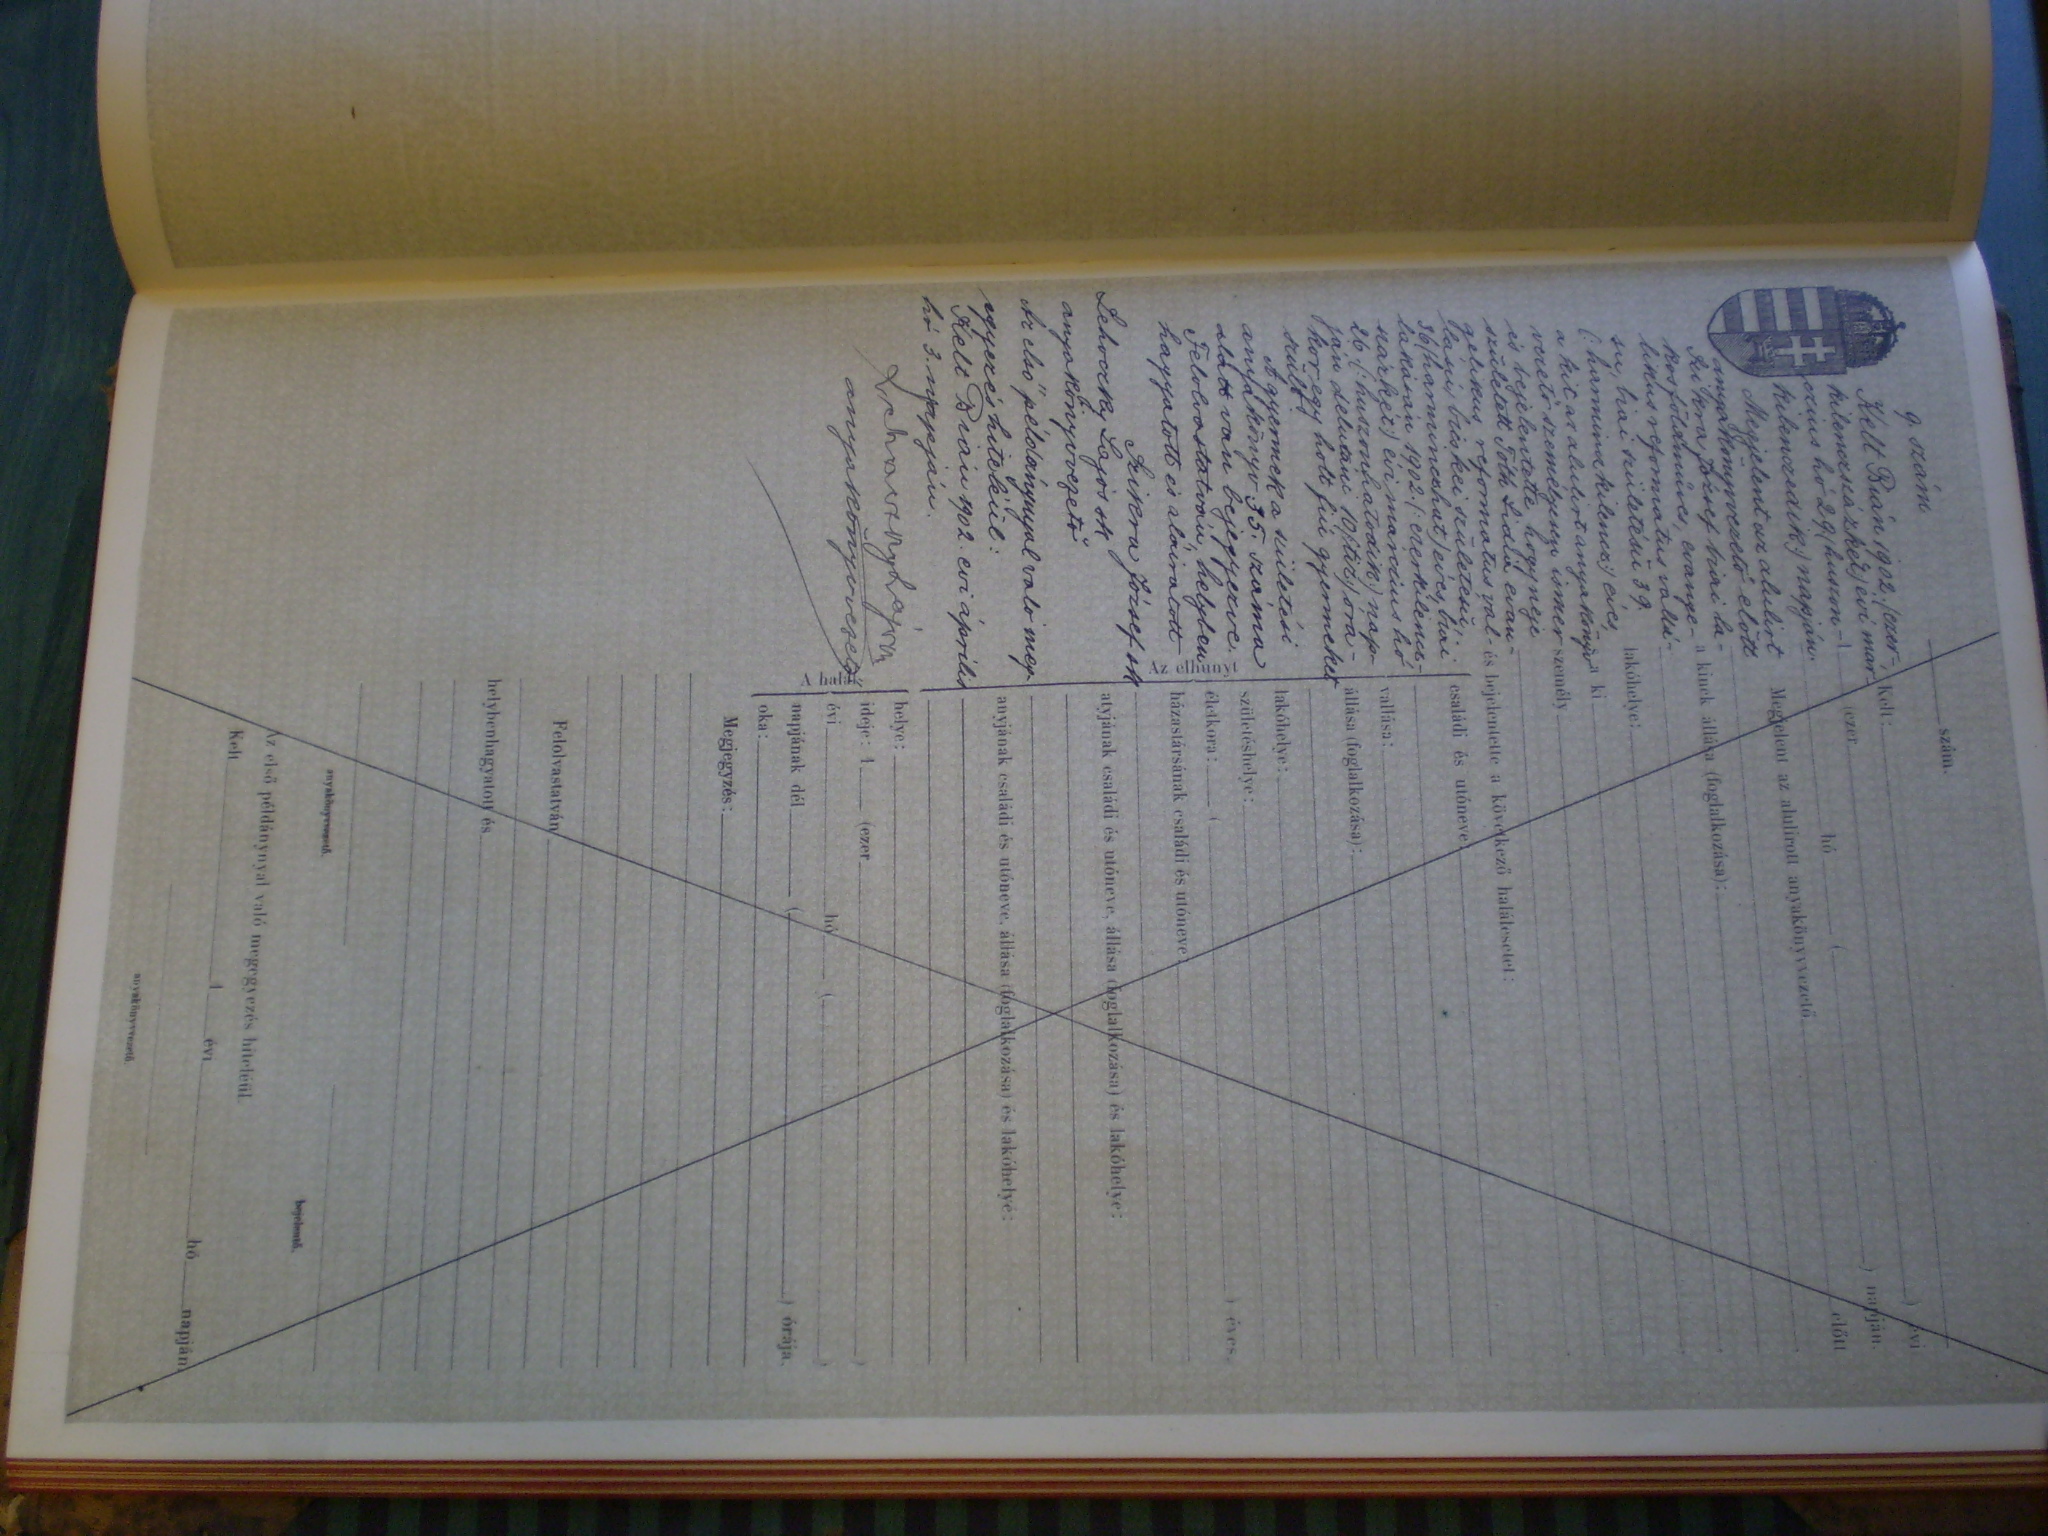 9. szám
Kelt Bián 1902. (: ezer-
kilenczszázkét :) évi mar-
czius hó 29 (: huszon-
kilenczedik :) napján.
Megjelent az alulirt
anyakönyvvezető előtt
József biai la-
kos földműves, evange-
likus reformatus vallá-
su, biai születésü 39
(: harminczkilencz :) éves,
a kit az alulirt anyakönyv-
vezető személyesen ismer
és bejelentette hogy neje
született Tóth Lidia evan-
gelikus reformatus val-
lásu, bicskei születésü,
36 (harminczhat) éves, biai
lakásán 1902. (: ezerkilencz-
százkét :) évi marczius hó
26 (: huszonhatodik :) nap-
ján délutáni 10 (: tíz :) óra-
kor egy holt fiú gyermeket
szült.
A gyermek a születési
anyakönyv 35. száma
alatt van bejegyezve.
Felolvastatván, helyben
hagyatott és aláiratott
József sk
Lehoczky Lajos sk
anyakönyvvezető
Az első példánynyal való meg-
egyezés hiteléül:
Kelt Bián 1902. évi április
hó 3. napján.
Lehoczky Lajos
anyakönyvvezető
szám.
Kelt: évi
1 (ezer )
hó ( ) napján.
Megjelent az alulirott anyakönyvvezető előtt
a kinek állása (foglalkozása):
lakóhelye:
a ki
személy
és bejelentette a következő halálesetet:
Az elhunyt
családi és utóneve:
vallása:
állása (foglalkozása):
lakóhelye:
születéshelye:
életkora: ( ) éves.
házastársának családi és utóneve:
atyjának családi és utóneve, állása (foglalkozása) és lakóhelye:
anyjának családi és utóneve, állása (foglalkozása) és lakóhelye:
A halál
helye:
ideje: 1 (ezer )
évi hó ( )
napjának dél ( ) órája.
oka:
Megjegyzés:
Felolvastatván
helybenhagyatott és
anyakönyvvezető. bejelentő.
Az első példánynyal való megegyezés hiteléül.
Kelt 1 évi hó napján
anyakönyvvezető.